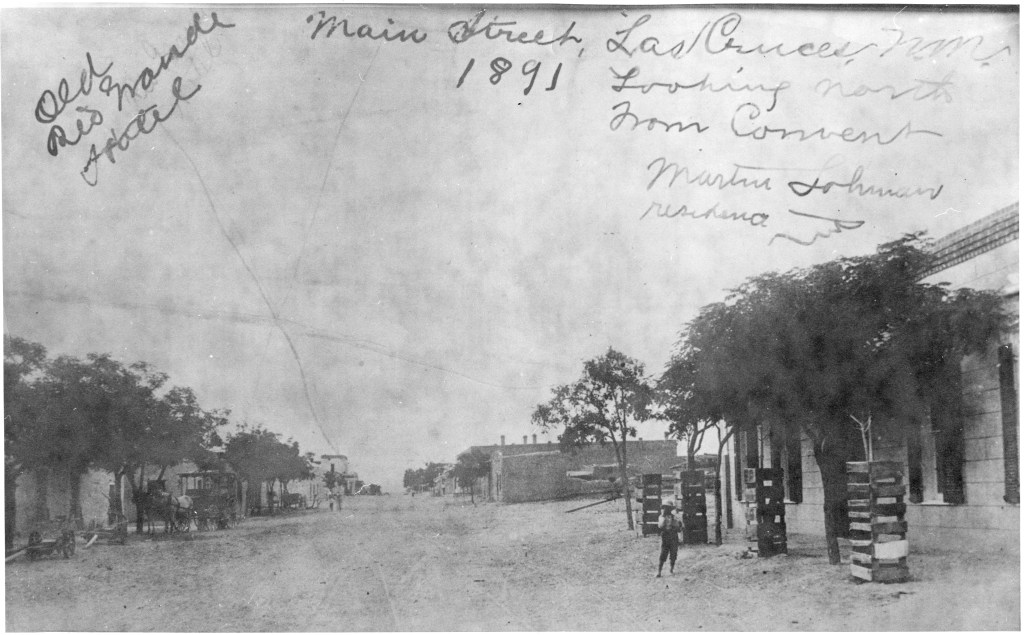 Old
Rio Grande
Hotel
Main Street, Las Cruces, N.M.
1891
Looking north
From Convent
Martin Lohman
residence